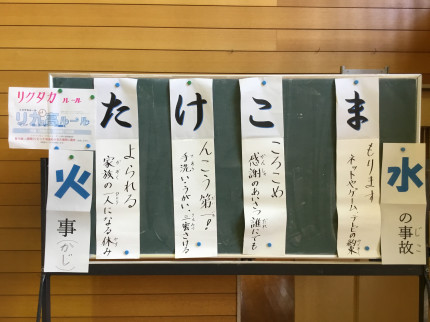 水の事故
じこ
ま
もります
ネットやゲーム、テレビの約束
こ
ころこめ
感謝のあいさつ誰にでも
け
んこう第一！
手洗い・うがい、三密さける
た
よられる
家族の一人になる休み
リクタカ ルール
ルール
火事（かじ）